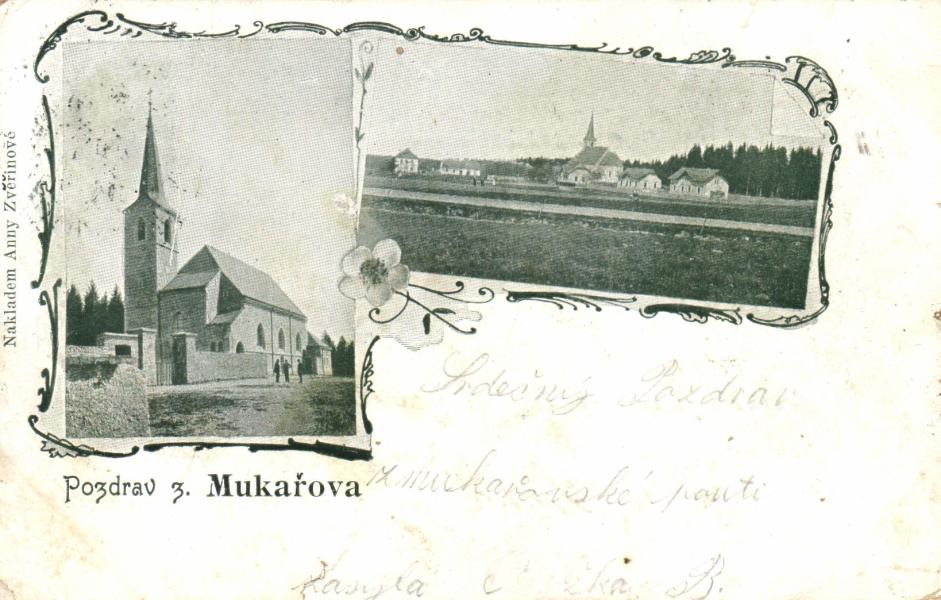 Nakladem Anny Zvěřinové
Pozdrav z. Mukařova
Srdečný Pozdrav
z mukařovské pouti
zasylá B.